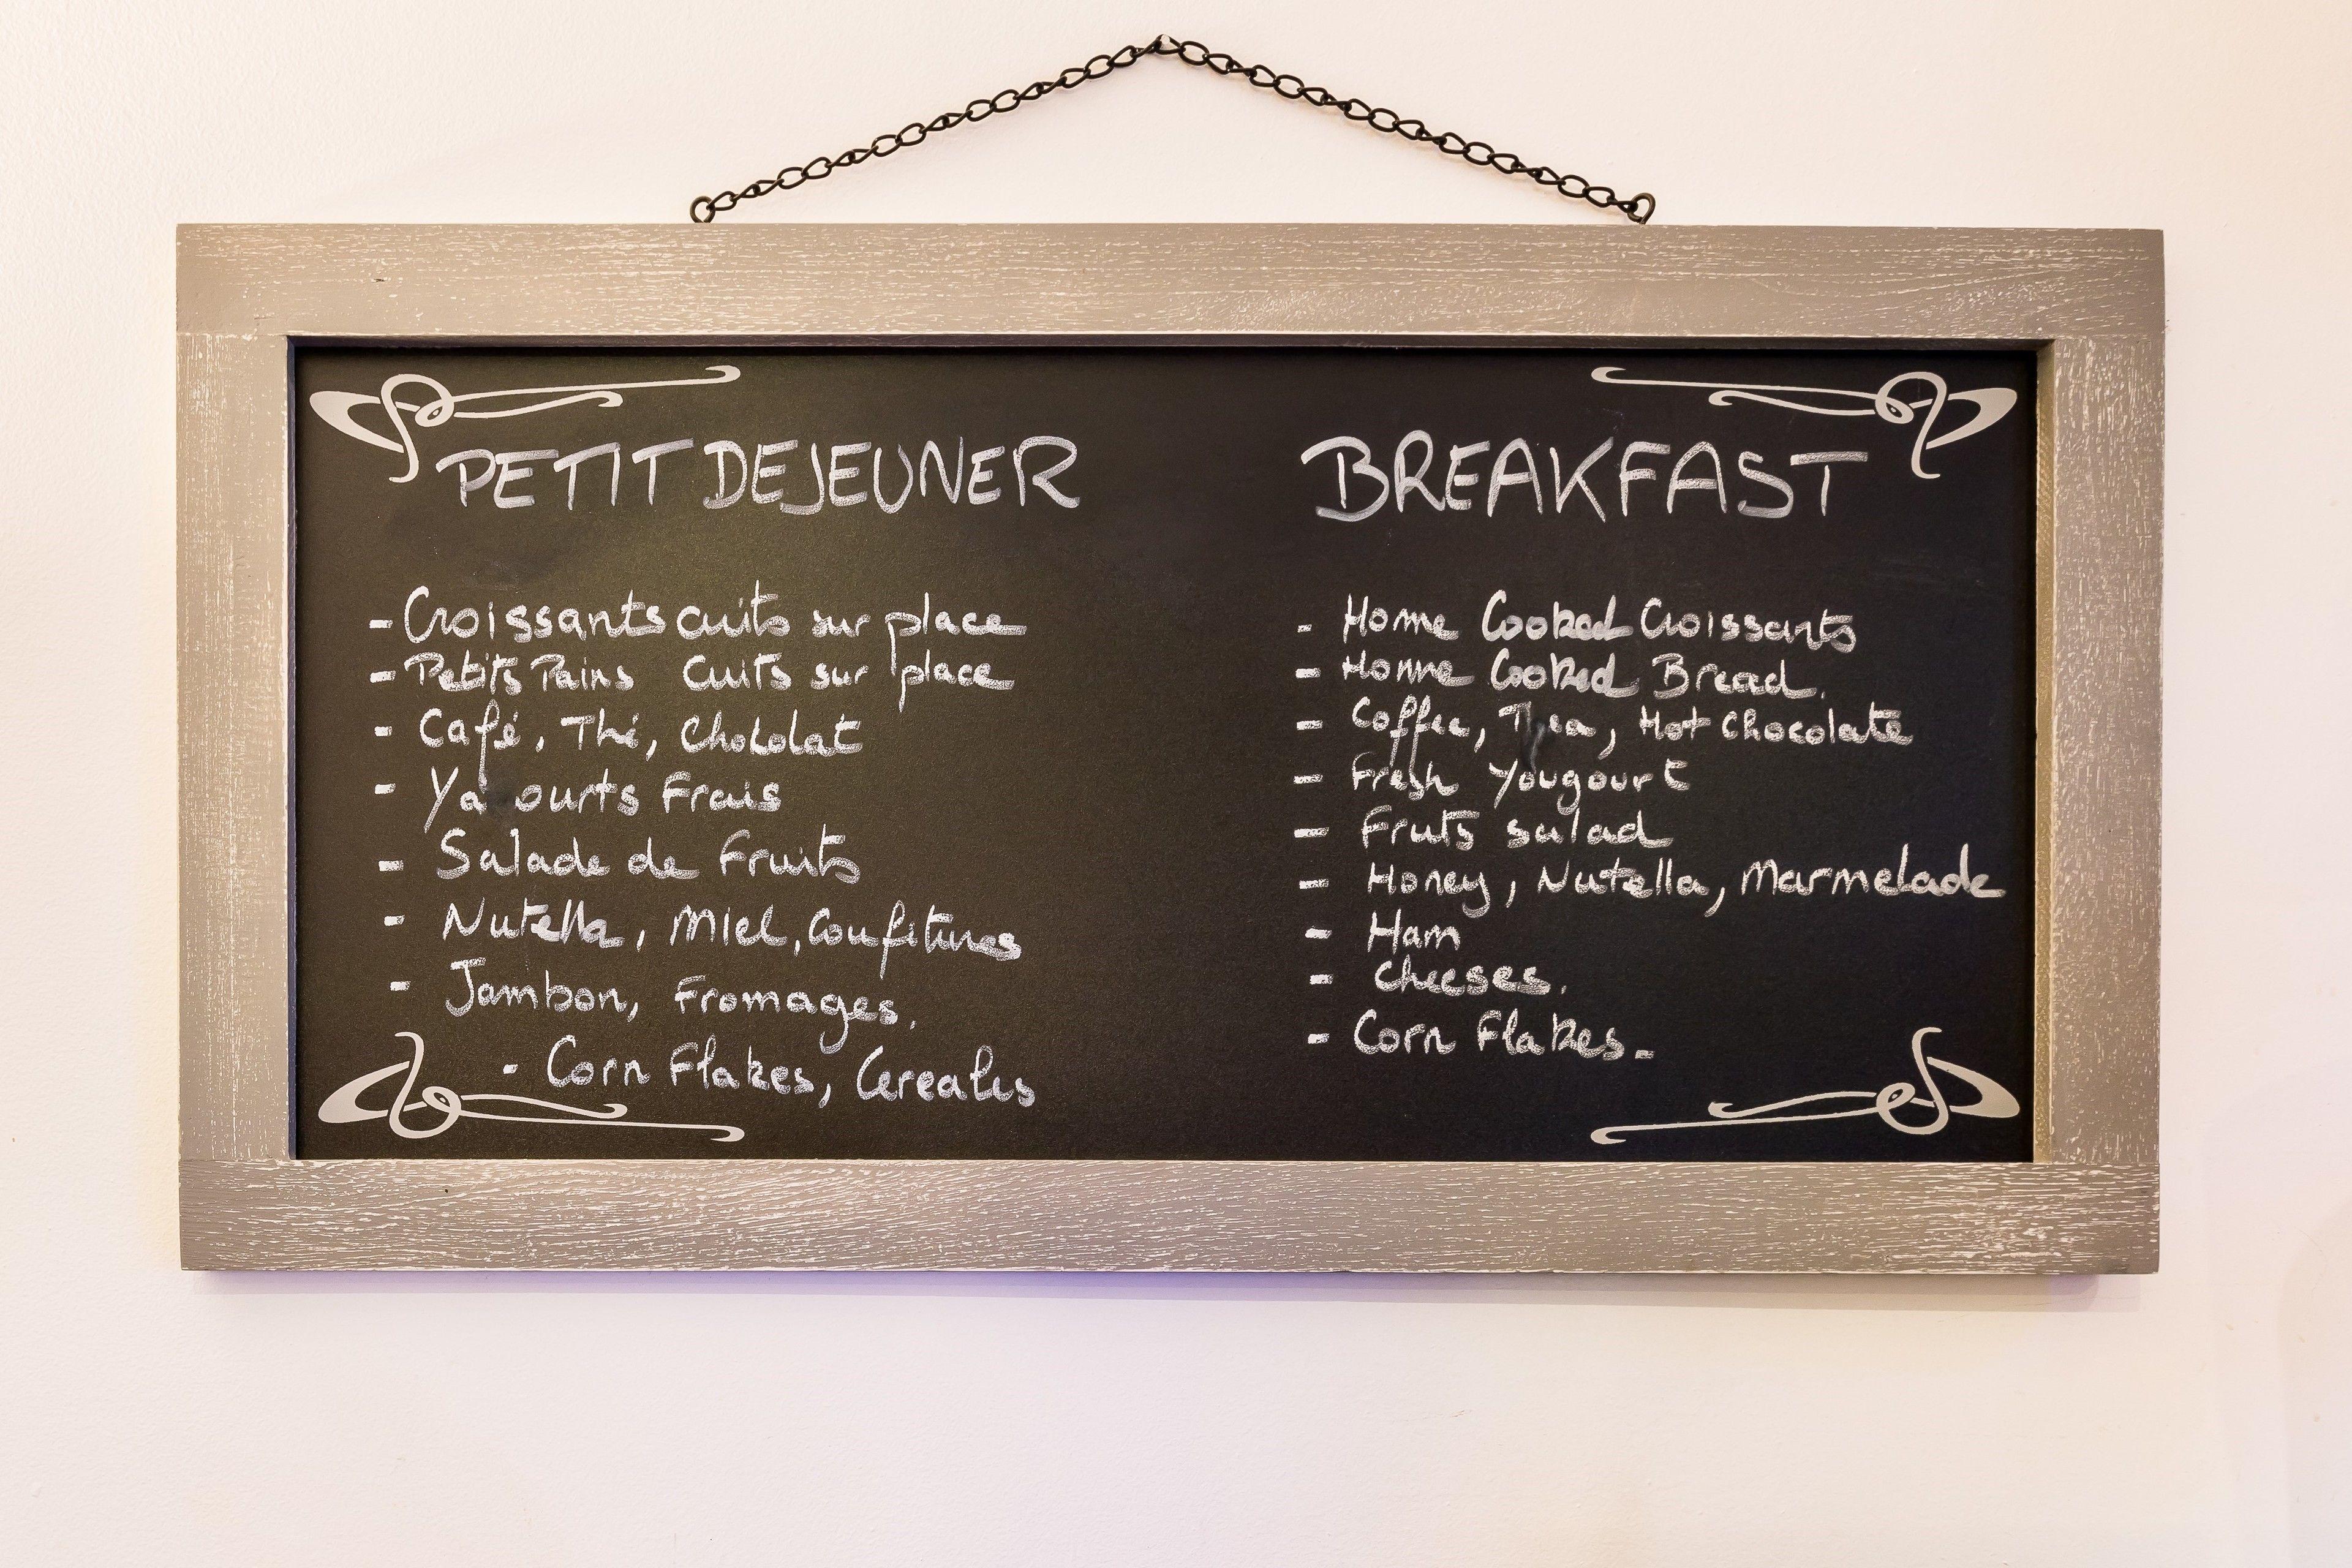 PETIT DEJEUNER
- Croissants cuits sur place
- Petits Pains cuits sur place
- Café, Thé, Chokolat
- Ya ourts Frais
- Salade de Fruits
- Nutella, Miel, Confitures
- Jambon, Fromages.
- Corn Flakes, Cereales
BREAKFAST
- Home Cooked Croissants
- Home Cooked Bread.
- Coffee, Tea, Hot Chocolate
- Fresh Yougourt
- Fruts salad
- Honey, Nutella, Marmelade
- Ham
- Cheeses.
- Corn Flakes.